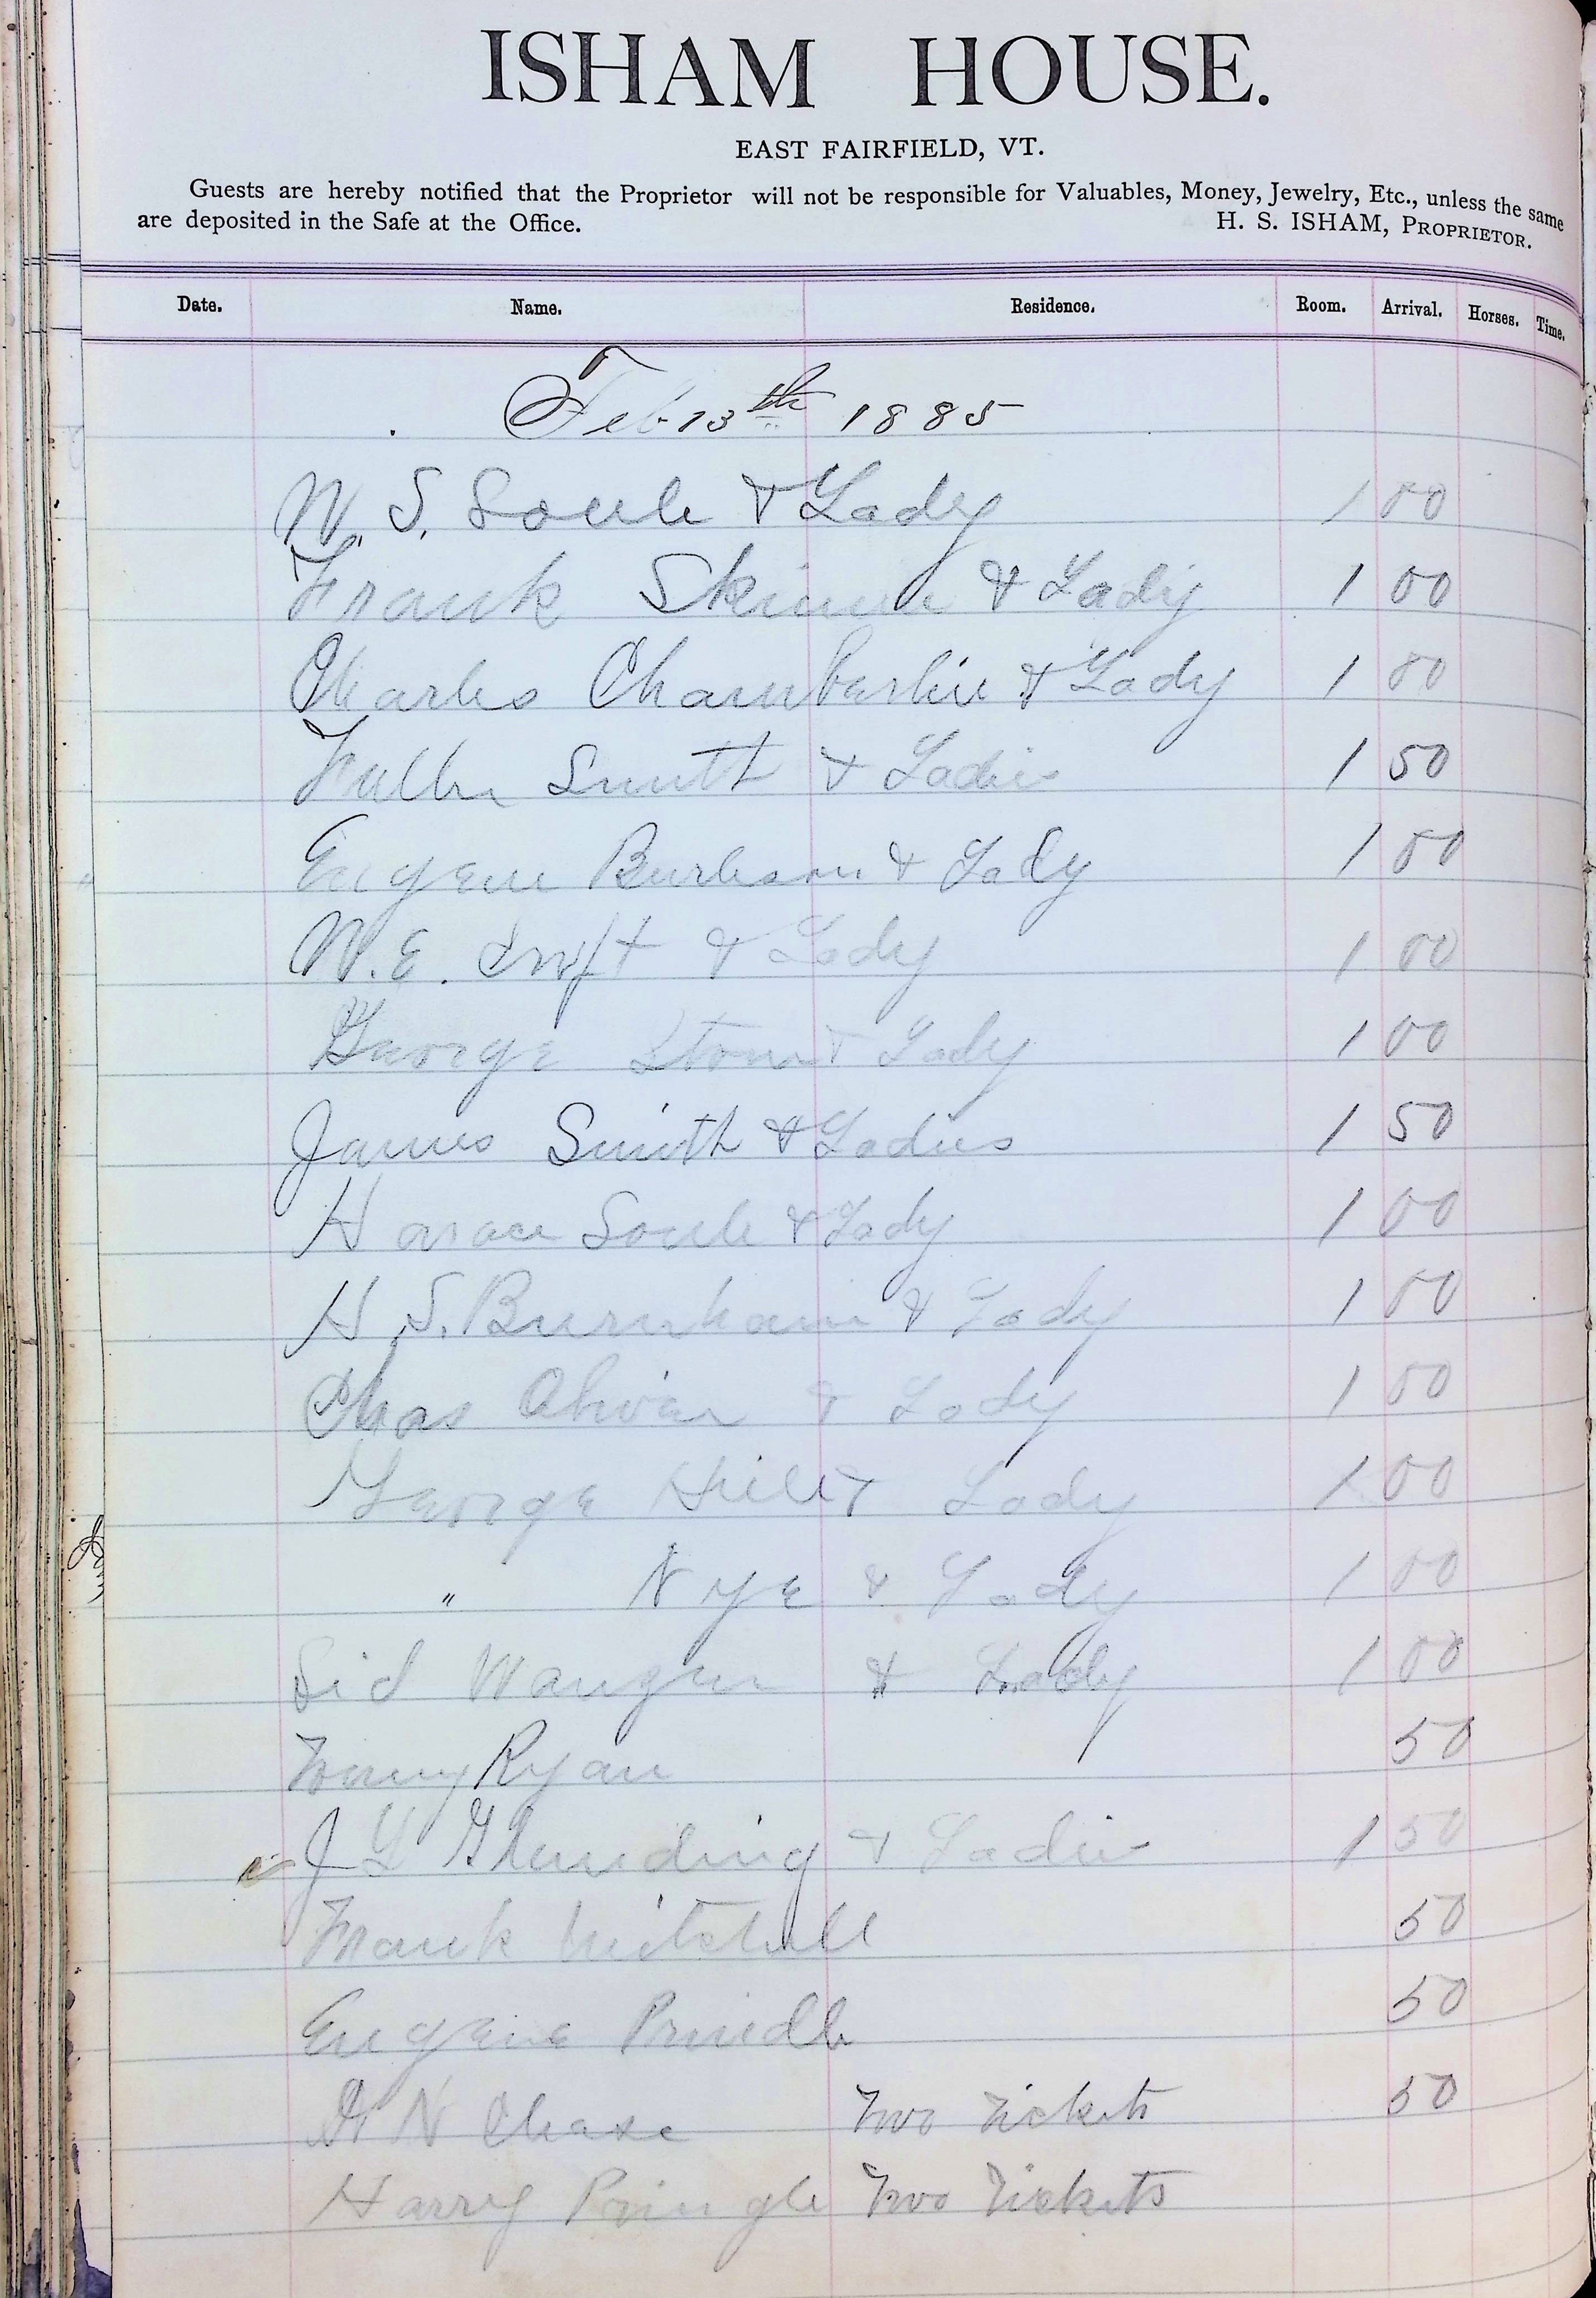 ISHAM HOUSE.
EAST FAIRFIELD, VT.
Guests are hereby notified that the Proprietor will not be responsible for Valuables, Money, Jewelry, Etc., unless the same
are deposited in the Safe at the Office. H. S. ISHAM, PROPRIETOR.
Date. Name. Residence. Room. Arrival. Horses. Time.
Feb 13th 1885
N. S. Soule & Lady 1 00
Frank Skinner & Lady 1 00
Charles Chamberlin & Lady 1 00
Fuller Smith & Ladies 1 50
Eugene Burleson & Lady 1 00
N. E. Swift & Lady 1 00
George Stone & Lady 1 00
James Smith & Ladies 1 50
Horace Soule & Lady 1 00
H. S. Burnham & Lady 1 00
Chas Oliver & Lady 1 00
George Hill & Lady 1 00
" Nye & Lady 1 00
Sid & Lady 1 00
Ryan 50
J & Ladies 1 50
Frank Mitchell 50
Eugene Prindle 50
N Chase Two Tickets 50
Harry Pringle Two Tickets